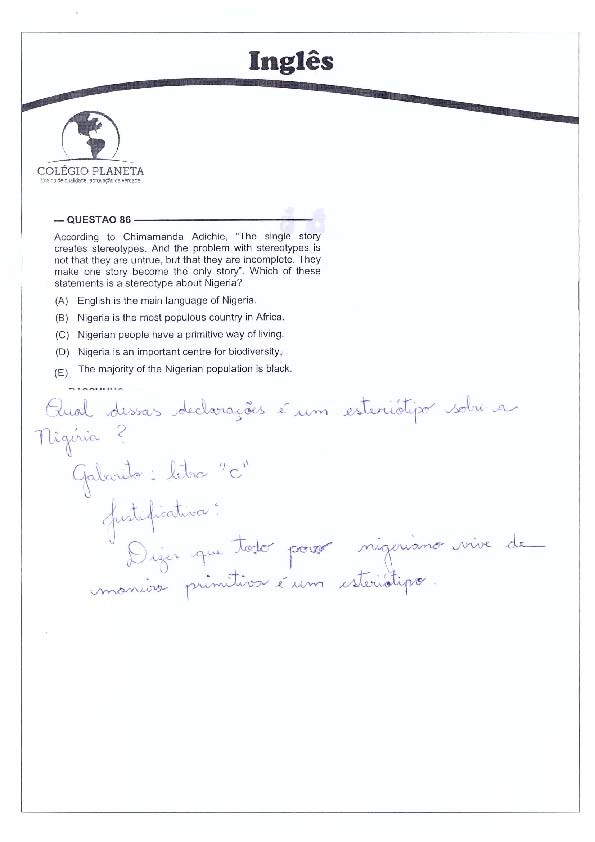 Inglês
COLÉGIO PLANETA
Ensino de qualidade, aprovação de verdade
QUESTAO 86
According to Chimamanda Adichie, "The single story
creates stereotypes. And the problem with stereotypes is
not that they are untrue, but that they are incomplete. They
make one story become the only story". Which of these
statements is a stereotype about Nigeria?
(A) English is the main language of Nigeria.
(B) Nigeria is the most populous country in Africa.
(C) Nigerian people have a primitive way of living.
(D) Nigeria is an important centre for biodiversity,
(E) The majority of the Nigerian population is black.
Qual dessas declarações é um esteriótipo sobre a
Nigéria?
Gabarito: letra "c"
Justificativa:
Dizer que todo povo nigeriano vive de
maneira primitiva é um esteriótipo.